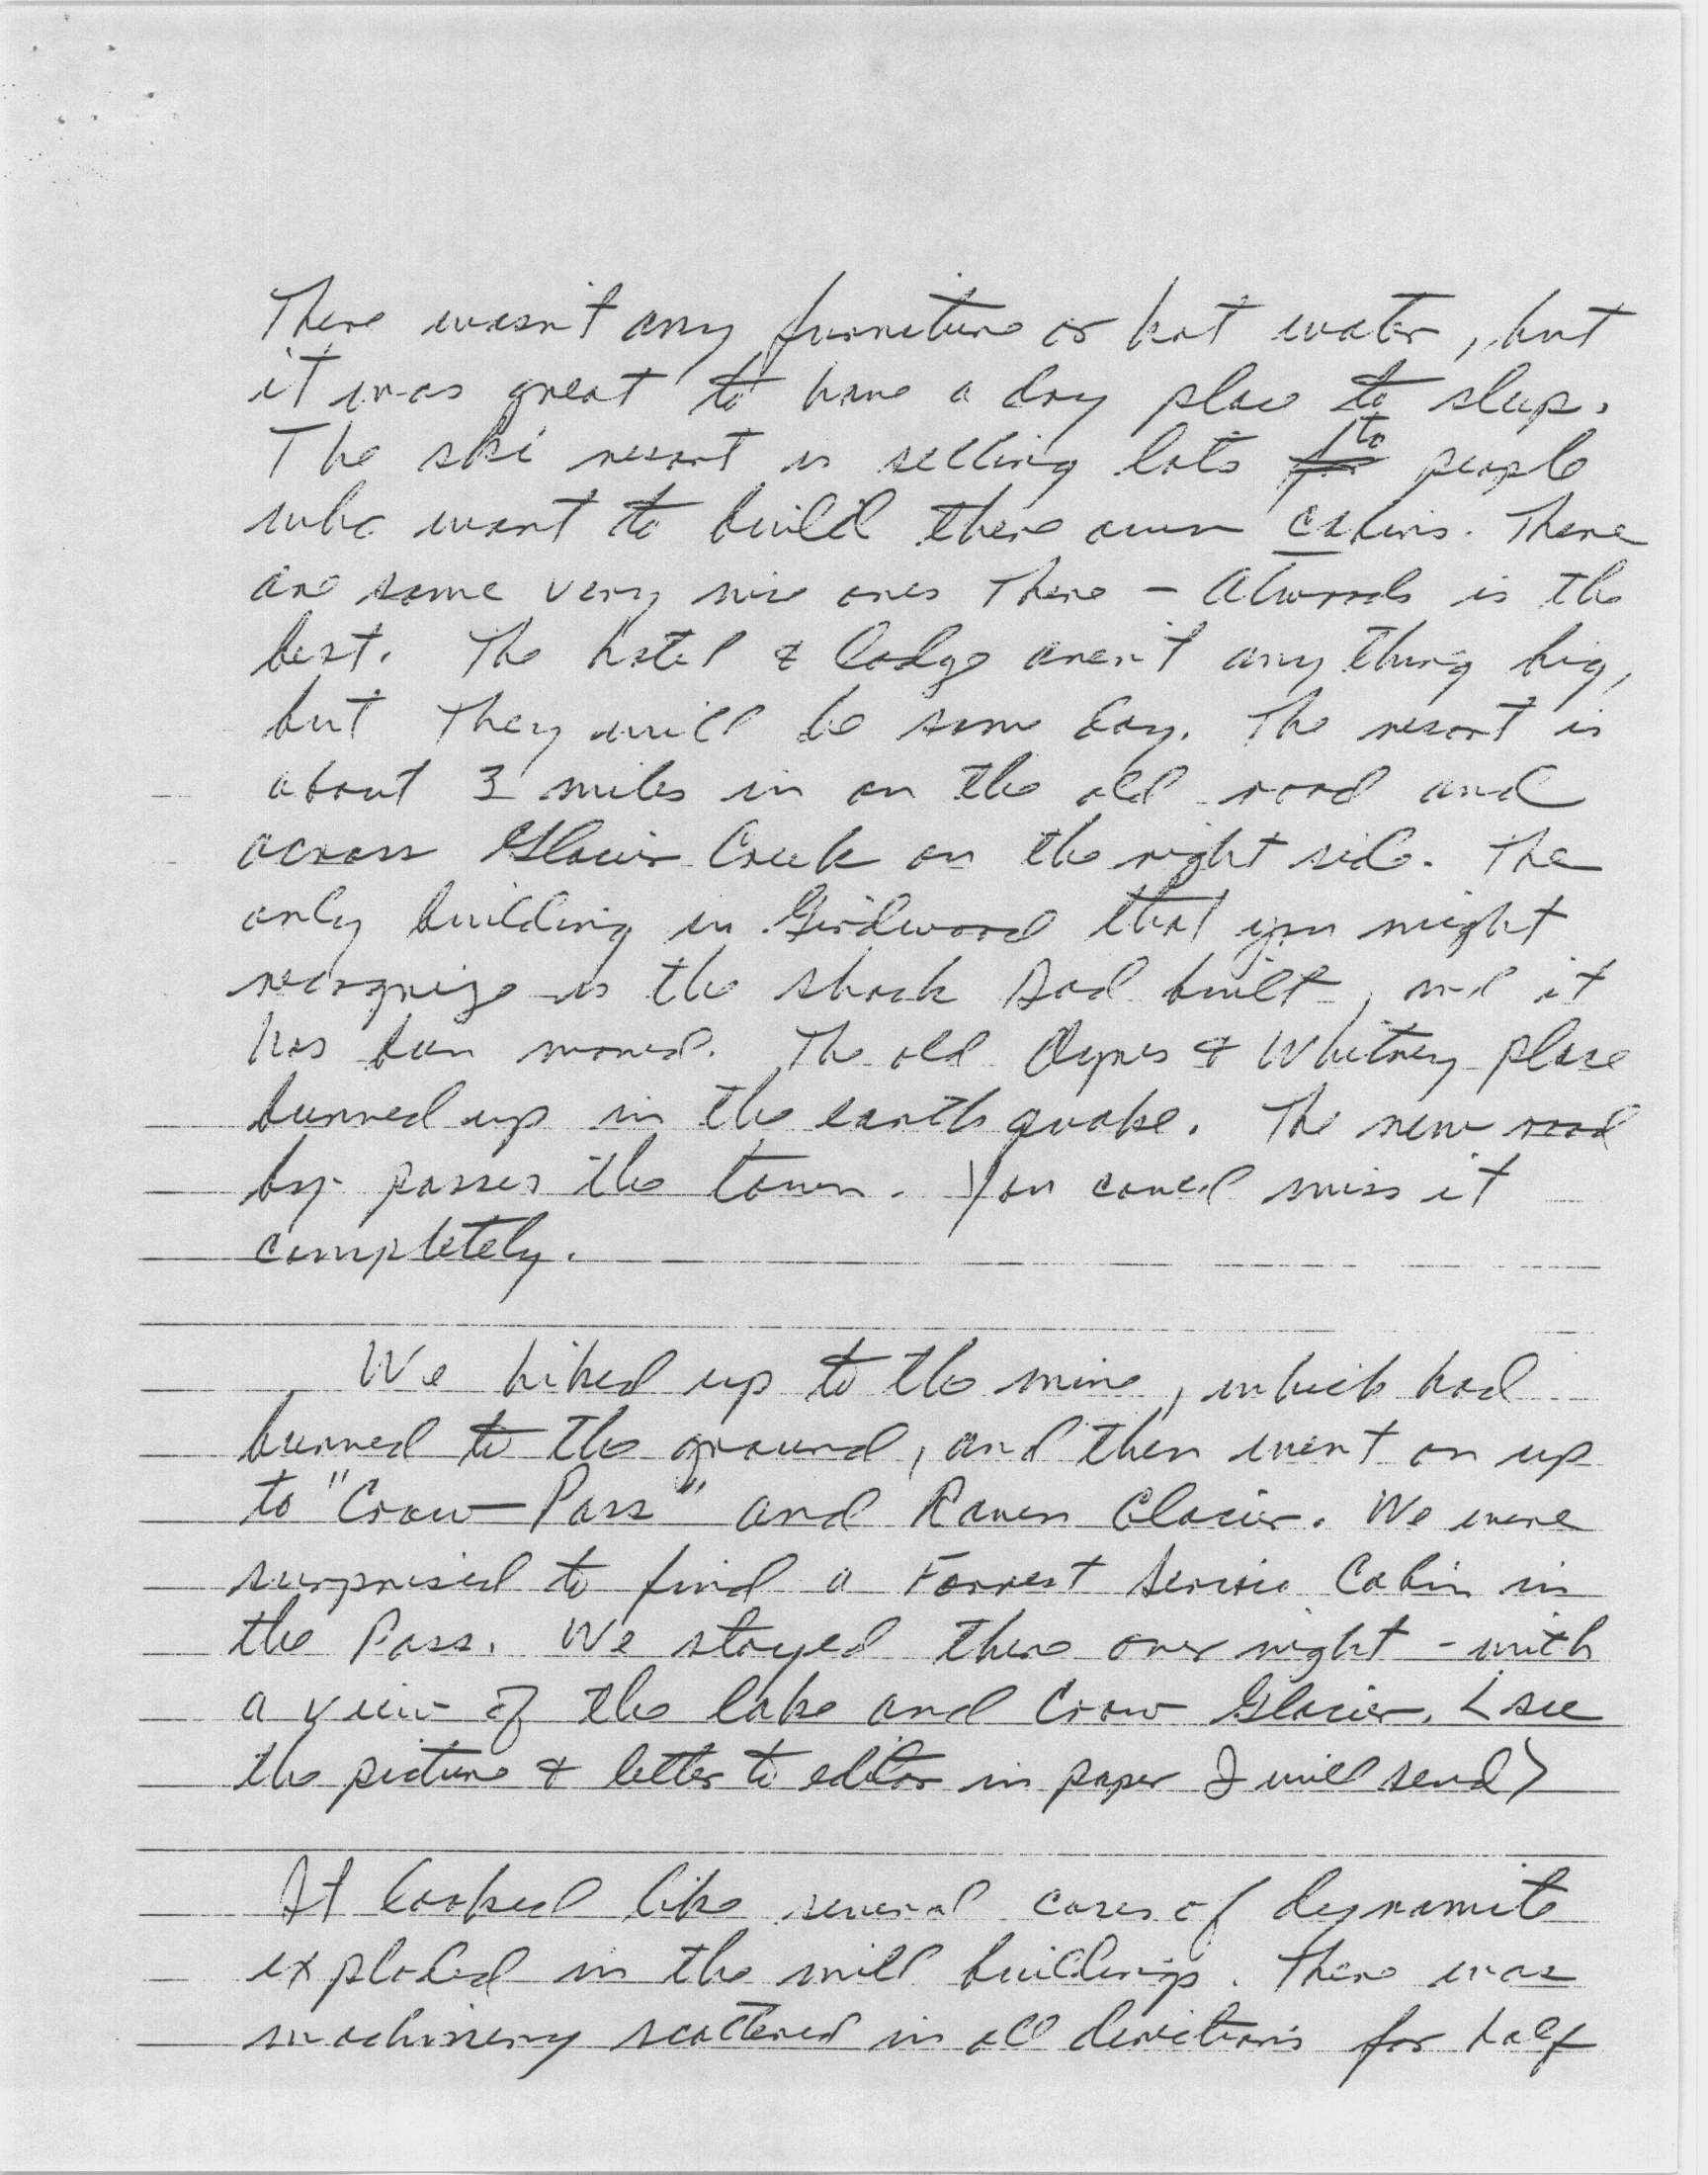 There wasn't any furniture or hot water, but
it was great to have a dry place to sleep.
The ski resort is selling lots to people
who want to build there own cabins. There
are some very nice ones there - Atwoods is the
best. The hotel & lodge aren't any thing big,
but they will be some day. The resort is
about 3 miles in on the old road and
across Glacier Creek on the right side. The
only building in Girdwood that you might
recognize is the shack Dad built, and it
has been moved. The old & Whitney place
burned up in the earth quake. The new road
by-passes the town. You could miss it
completely.
We hiked up to the mine, which had
burned to the ground, and then went on up
to "Crow Pass" and Raven Glacier. We were
surprised to find a Forrest Service Cabin in
the Pass. We stayed there over night - with
a view of the lake and Crow Glacier. (see
the picture & letter to editor in paper I will send)
It looked like several cases of dynamite
exploded in the mill buildings. There was
machinery scattered in all directions for half